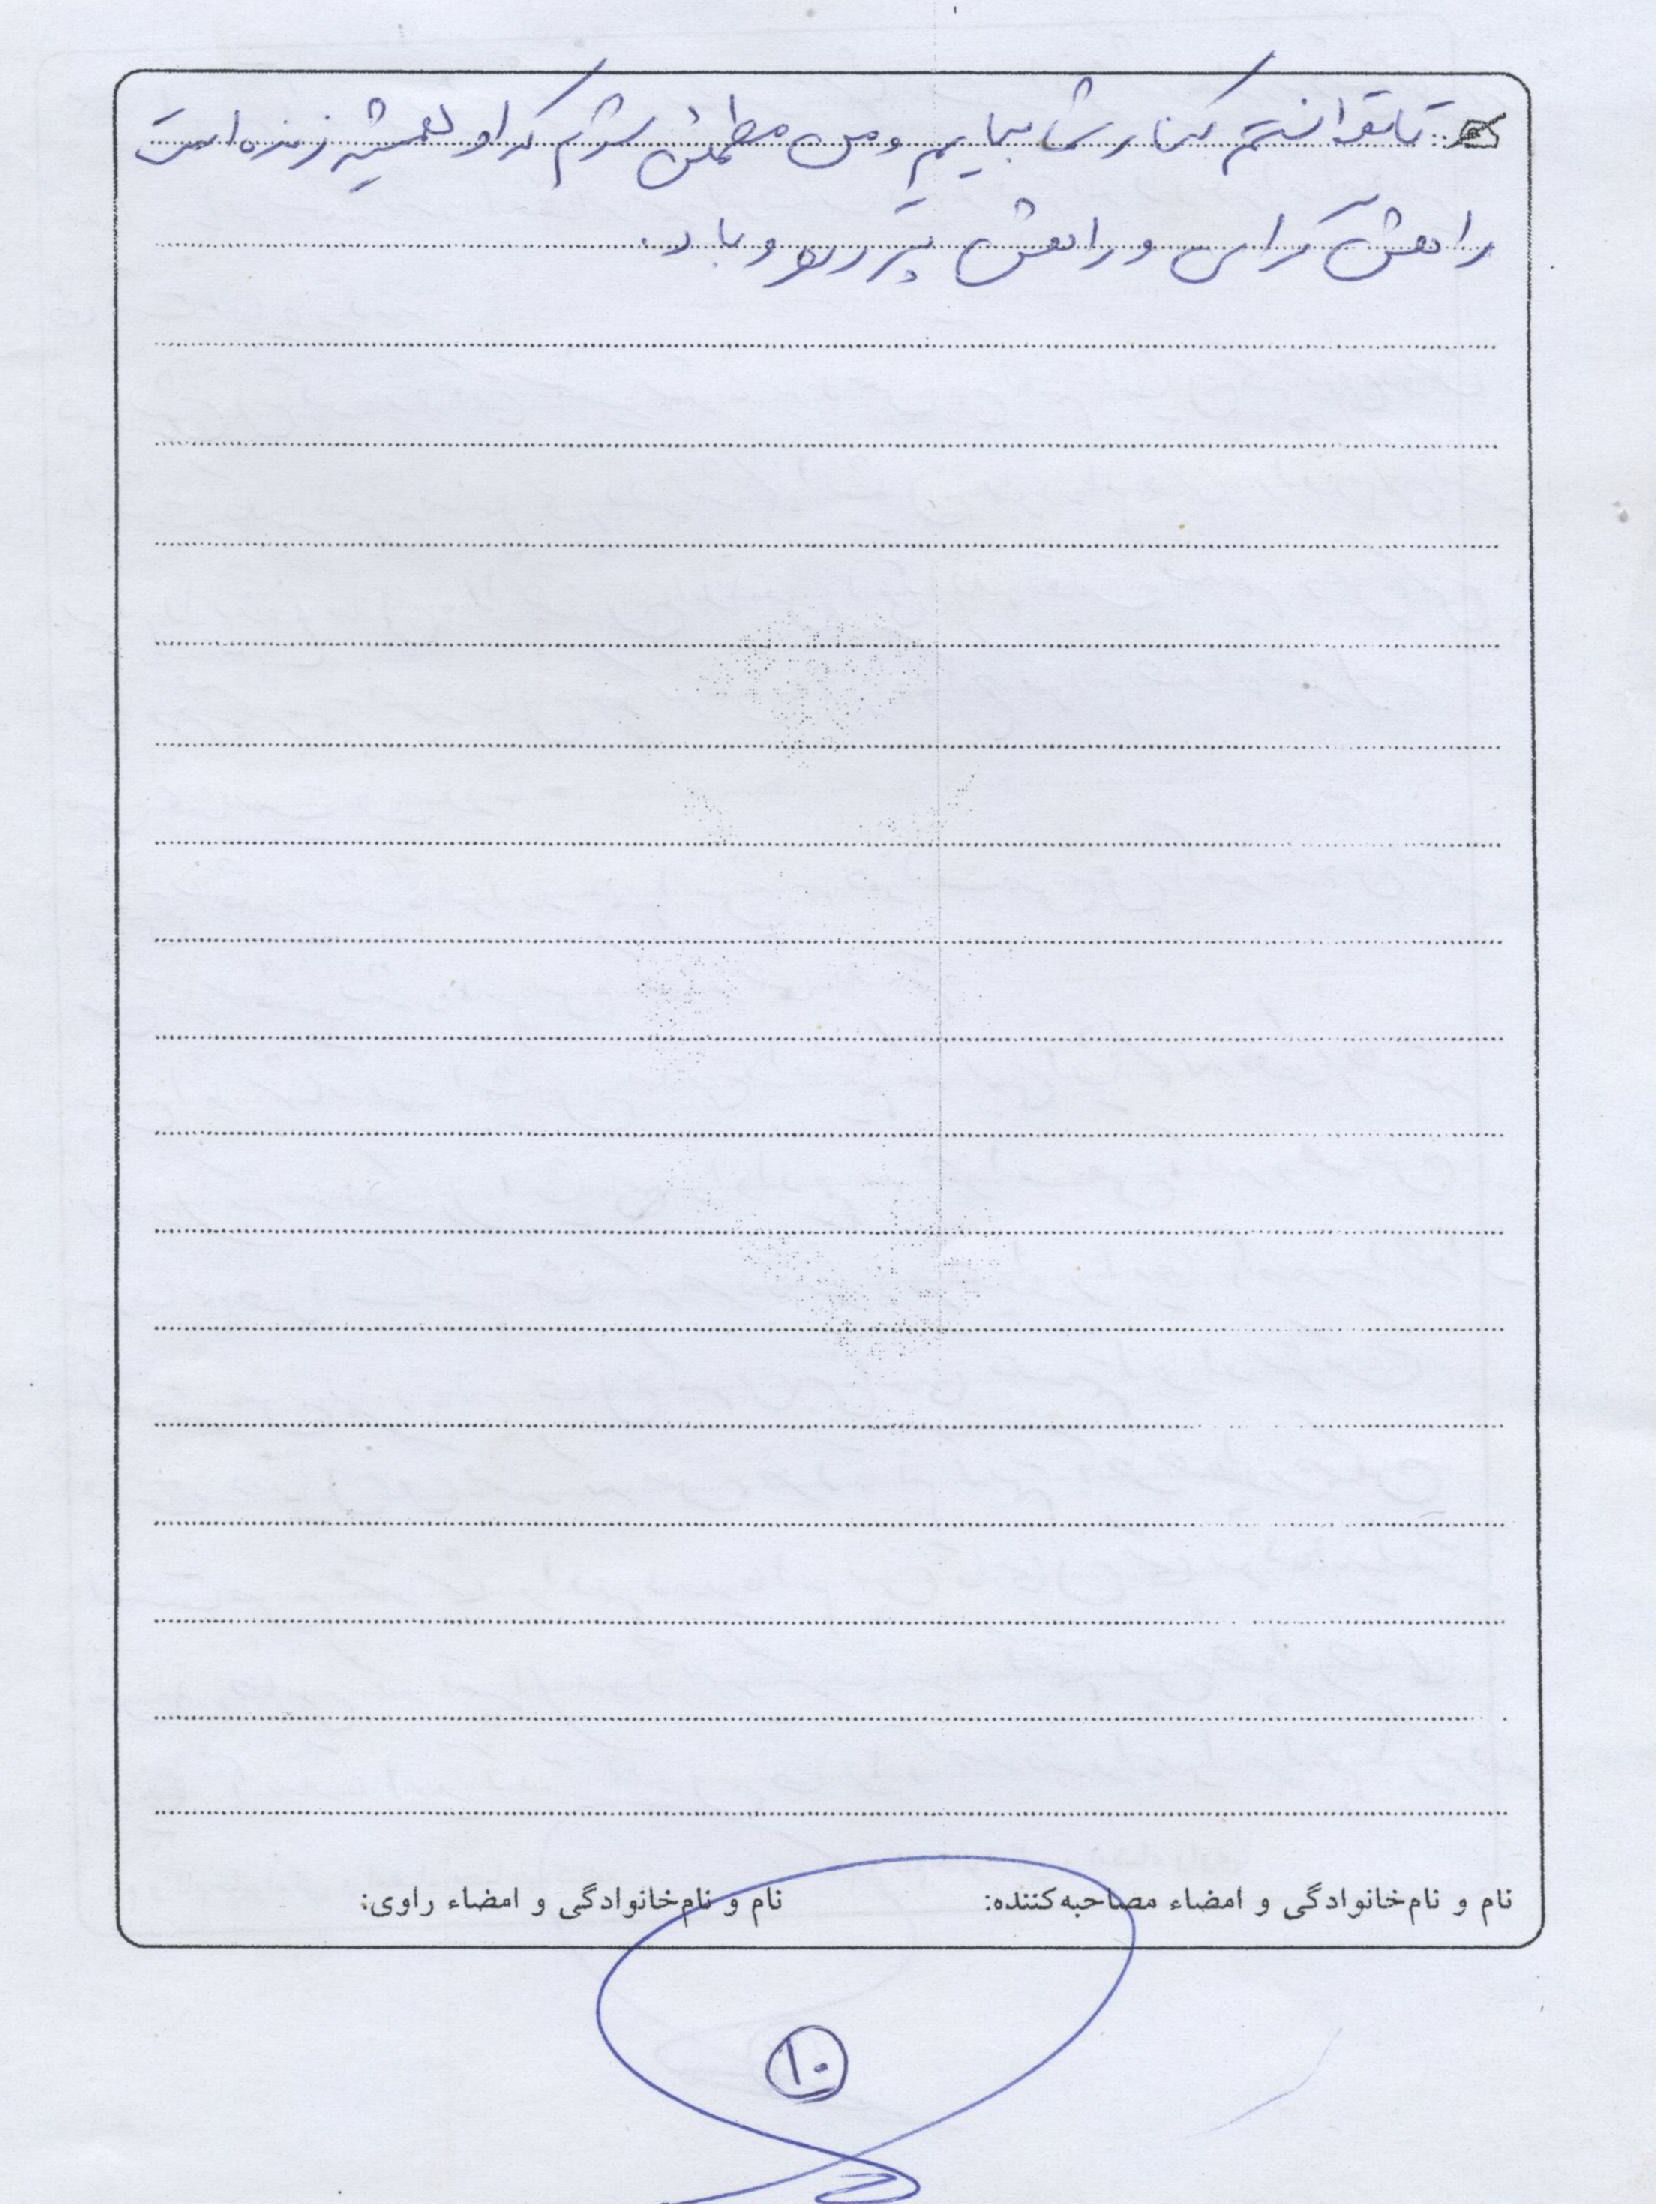 تا توانستم کنار شما بیایم و من مطمئن شدم که او همیشه زنده است
راهش گرامی و راهش پر رهرو باد.
نام و نام‌خانوادگی و امضاء مصاحبه‌کننده:
نام و نام‌خانوادگی و امضاء راوی:
۱۰